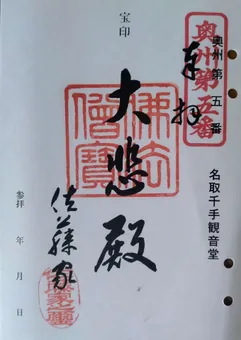 奥州第五番
奥州第五番
奉拝
名取千手観音堂
宝印
佛法僧寳
大悲殿
佐藤家
参拝　年　月　日